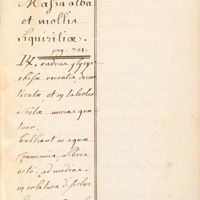 Massa alba
et mollis
Liquiritiæ.
pag. 301.
℞. radicis glycyr
rhisæ recentis decor
ticatæ et in taleolas
sectæ uncias qua
tuor.
bulliant in aquæ
communis libris
octo, ad medias
in colatura dissolve